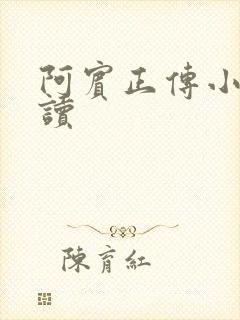 阿賓正傳小
讀
陳育紅